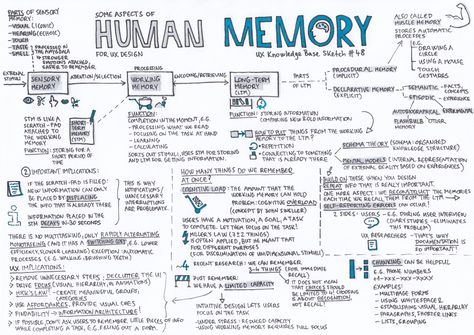 SOME ASPECTS OF
HUMAN MEMORY
FOR UX DESIGN
UX KNOWLEDGE BASE SKETCH #48
PARTS OF SENSORY
MEMORY:
- VISUAL (ICONIC)
- HEARING (ECHOIC)
- TOUCH
- SMELL
- TASTE
PROCESSED IN
THE AMYGDALA
STRONGER
EMOTIONS ATTACHED,
EASIER TO REMEMBER
EXTERNAL
STIMULI
SENSORY
MEMORY
ATTENTION/SELECTION
PROCESSING
WORKING
MEMORY
ENCODING/RETRIEVING
LONG-TERM
MEMORY
(LTM)
PARTS
OF LTM
PROCEDURAL MEMORY
(IMPLICIT)
DECLARATIVE MEMORY
(EXPLICIT)
ALSO CALLED
MUSCLE MEMORY
STORES AUTOMATIC
PROCESSES
E.G.
- DRAWING A
CIRCLE
- USING A MOUSE
- TOUCH
GESTURES
- SEMANTIC - FACTS,
CONCEPTS
- EPISODIC - EXPERIENCE
- AUTOBIOGRAPHICAL
FLASHBULB,
MEMORY
STM IS LIKE A
SCRATCH-PAD
ATTACHED TO
THE WORKING
MEMORY
SHORT-TERM
MEMORY
(STM)
FUNCTION: STORING FOR A
SHORT PERIOD OF
TIME
FUNCTION:
COMPUTATION IN THE MOMENT, E.G.
- PROCESSING WHAT WE READ
- FOCUSING ON TASK AT HAND
- LEARNING
- CALCULATING
SORTS OUT STIMULI, USES STM FOR STORING
AND LTM FOR GETTING INFORMATION.
FUNCTION: STORING INFORMATION
COMPARING NEW & OLD INFORMATION
HOW TO PUT THINGS FROM THE WORKING
MEMORY TO THE LTM?
- REPETITION
- CONNECTING TO SOMETHING
THAT IS ALREADY THERE
SCHEMA THEORY (SCHEMA: ORGANIZED
KNOWLEDGE STRUCTURE)
MENTAL MODELS (INTERNAL REPRESENTATION
OF EXTERNAL REALITY BASED ON EXPERIENCES)
BUILD ON THESE WHEN YOU DESIGN
REPEAT INFO THAT IS REALLY IMPORTANT
ONE MORE ASPECT: WE RECONSTRUCT THE MEMORIES
EACH TIME WE RECALL THEM FROM THE LTM
2 SIDES: USERS - E.G. DURING USER INTERVIEWS
UX RESEARCHERS - THAT'S WHY
DOCUMENTATION IS
SO IMPORTANT
2 IMPORTANT IMPLICATIONS:
IF THE SCRATCH-PAD IS FILLED
NEW INFORMATION CAN ONLY
BE PLACED BY DISPLACING
THE INFO THAT'S ALREADY THERE
INFORMATION PLACED IN THE
STM DECAYS IN 30 SECONDS
THIS IS WHY
NOTIFICATIONS/
UNNECESSARY
INTERRUPTIONS
ARE PROBLEMATIC.
THERE IS NO MULTITASKING, ONLY RAPIDLY ALTERNATING
MONOTASKING (AND IT HAS A SWITCHING COST, E.G. LOWER
EFFICIENCY, SLOWER LEARNING (EXCEPTION: AUTOMATIC
PROCESSES (E.G. WALKING, BRUSHING TEETH)
UX IMPLICATIONS:
> REMOVE UNNECESSARY STEPS, DECLUTTER THE UI
> DRIVE FOCUS (VISUAL HIERARCHY, ANIMATIONS)
> HICK'S LAW - CREATE MEANINGFUL GROUPS,
CATEGORIES
> USE AFFORDANCES, PROVIDE VISUAL CUES
> FINDABILITY → INFORMATION ARCHITECTURE!
> IF POSSIBLE, DON'T ASK USERS TO REMEMBER LITTLE PIECES OF INFO
WHILE COMPLETING A TASK, E.G. FILLING OUT A FORM.
HOW MANY THINGS DO WE REMEMBER
AT ONCE?
COGNITIVE LOAD: THE AMOUNT THAT THE
WORKING MEMORY CAN HOLD
PROBLEM: COGNITIVE OVERLOAD
(CONCEPT BY JOHN SWELLER)
USERS HAVE A MOTIVATION, A GOAL, A TASK TO
COMPLETE. LET THEM FOCUS ON THE TASK!
MILLER'S LAW: (7±2 THINGS)
IS OFTEN APPLIED, BUT HE MEANT THAT
FOR DIFFERENT PURPOSES
RECENT RESEARCH: WE CAN REMEMBER
3-4 THINGS (FOR IMMEDIATE
RECALL)
JUST REMEMBER:
WE HAVE A LIMITED CAPACITY
IT DOES NOT MEAN
THAT CHOICES SHOULD
BE LIMITED TO 4! CHOOSING
IS ABOUT RECOGNITION,
NOT RECALL
INTUITIVE DESIGN LETS USERS
FOCUS ON THE TASK
UNDER STRESS: REDUCED CAPACITY
USING WORKING MEMORY REQUIRES FULL FOCUS
CHUNKING CAN BE HELPFUL
E.G. PHONE NUMBERS
EXAMPLES:
- MULTIPAGE FORMS
- USING WHITESPACE
- ESTABLISHING VISUAL HIERARCHY
- PARAGRAPHS, SHORTER LINES
- LISTS, GROUPING